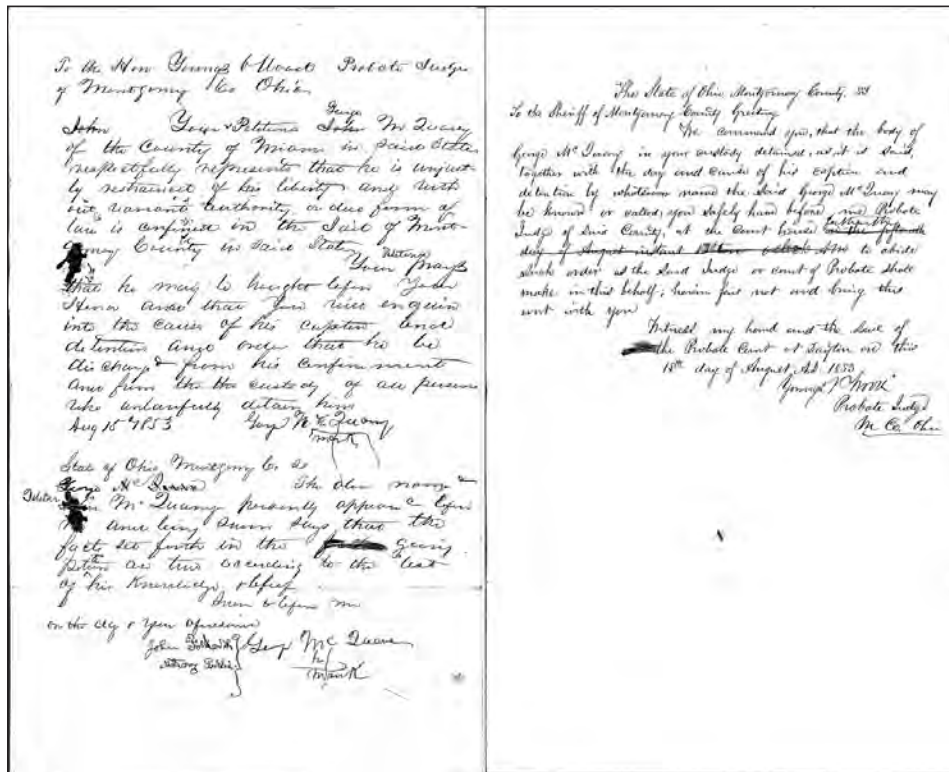 To the Hon Youngs V Wood Probate Judge
of Montgomery Co Ohio
George
John Your Petitioner John McQuary
of the County of Miami in said State
respectfully represents that he is unjust
ly restrained of his liberty and with
out warrant authority or due form of
law is confined in the Jail of Mont
gomery County in said State
Petitioner
Your prays
that he may be brought before Your
Honor and that you will enquire
into the cause of his caption and
detention and order that he be
discharged from his confinement
and from the the custody of all persons
who unlawfully detain him
Aug 15 1853 George McQuary
mark
State of Ohio, Montgomery Co SS
George Mc The above named
McQuary personally appeared before
me and being sworn says that the
facts set forth in the going
petition are true according to the best
of his Knowledge & belief
Sworn to before me
on the day & year aforesaid
John
George McQuary
his
mark
The State of Ohio Montgomery County, SS
To the Sheriff of Montgomery County Greeting
We command you, that the body of
George McQuary in your custody detained, as it is said,
together with the day and cause of his caption and
detention by whatsoever name the said George McQuary may
be known or called, you safely have before me Probate
Judge of said County, at the Court house forthwith on the fifteenth
day of August instant AM to abide
such order as the said Judge or court of Probate shall
make in this behalf; herein fail not and bring this
writ with you
Witness my hand and the seal of
the Probate Court at Dayton on this
15th day of August, AD 1853
Youngs V Wood
Probate Judge
M Co. Ohio